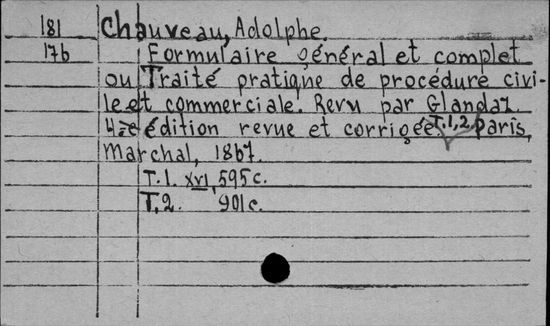 181 Chauveau, Adolphe.
17б Formulaire général et complet
ou Traité pratique de procédure civi-
le et commerciale. Revu par Glandaz.
4-e édition revue et corrigée T.1,2 Paris,
Marchal, 1867.
T.1. XVI, 595c.
T.2. 901c.